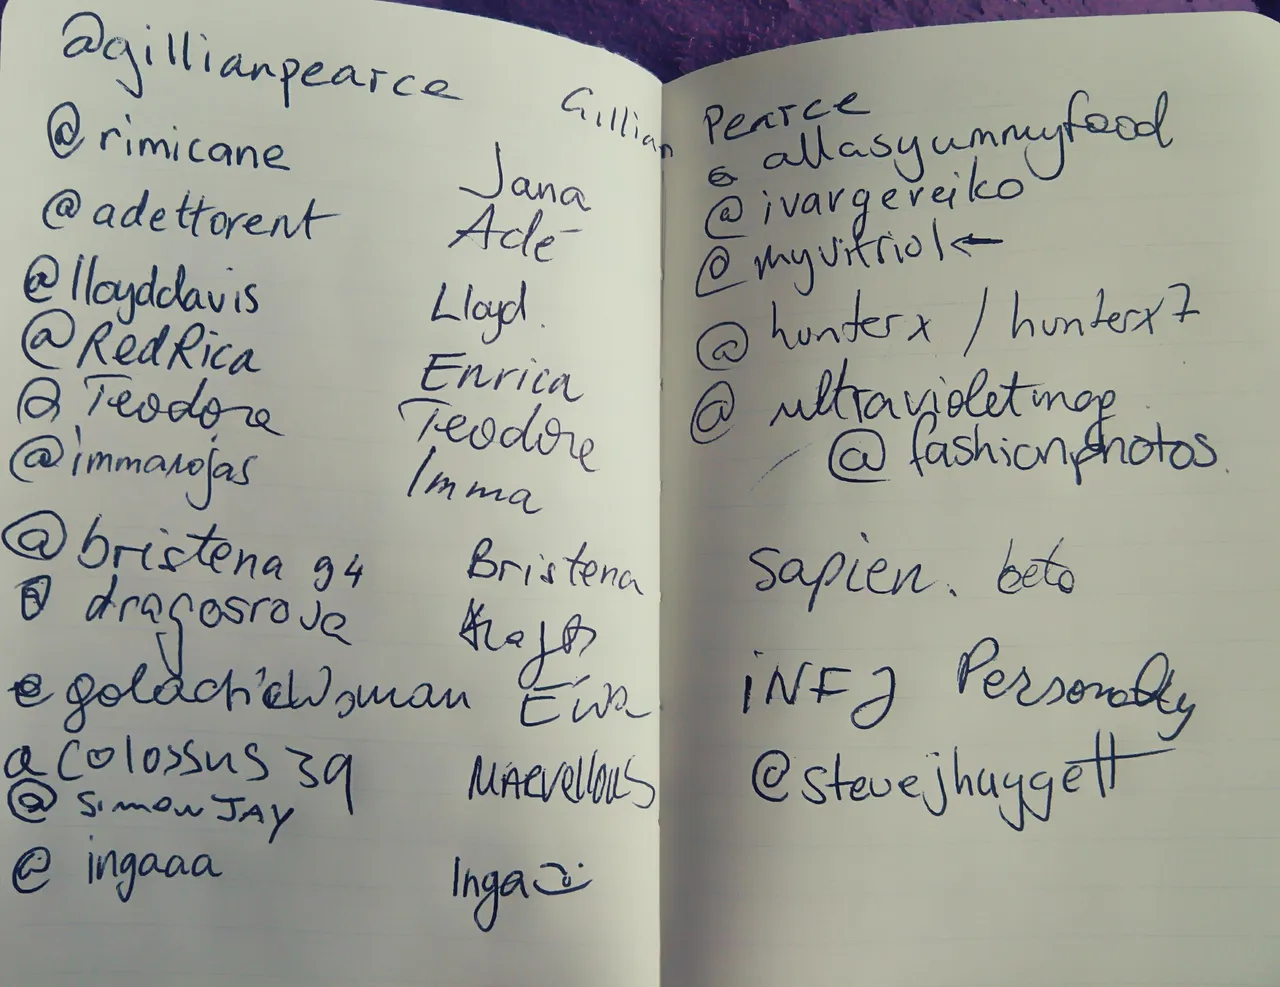 @gillianpearce Gillian Pearce
@rimicane Jana
@adettorent Adé
@lloyddavis Lloyd.
@RedRica Enrica
@Teodore Teodore
@immarojas Imma
@bristena 94 Bristena
@dragosroua
@ Ewa
@Colossus 39 MARVELLOUS
@SIMONJAY
@ingaaa Inga
@allasyummyfood
@ivargereiko
@myvitriol ←
@hunterx / hunterx7
@ultravioletmag
@fashionphotos.
Sapien. beto
iNFJ Personality
@stevejhuggett